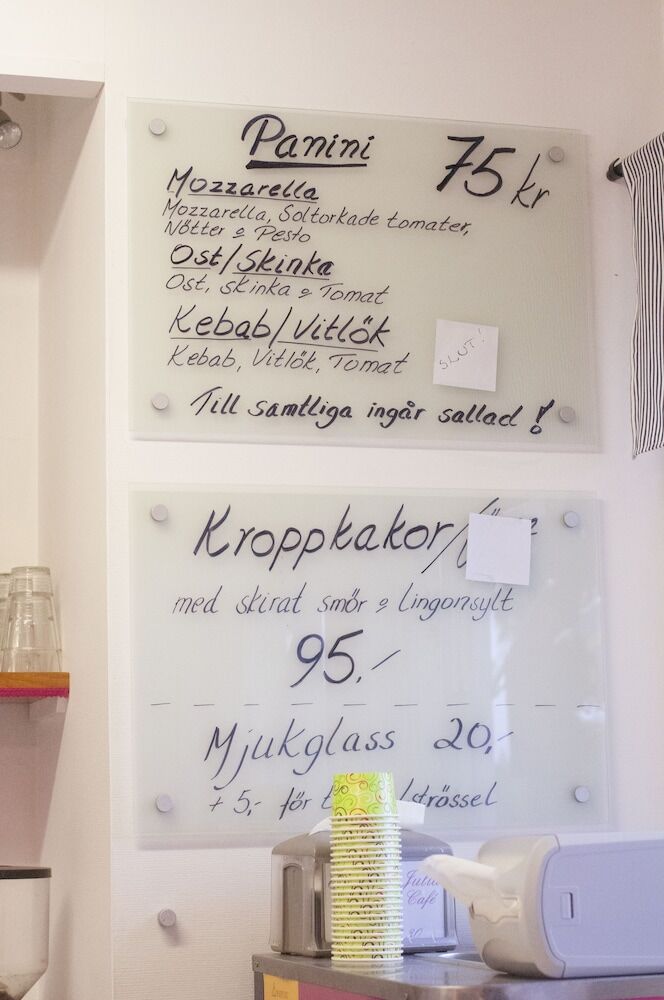 Panini 75 kr
Mozzarella
Mozzarella, Soltorkade tomater,
Nötter o Pesto
Ost/Skinka
Ost, skinka o Tomat
Kebab/Vitlök
Kebab, Vitlök, Tomat
SLUT!
Till samtliga ingår sallad!
Kroppkakor/
med skirat smör o Lingonsylt
95.-
Mjukglass 20,-
+ 5,- för /strössel
Café